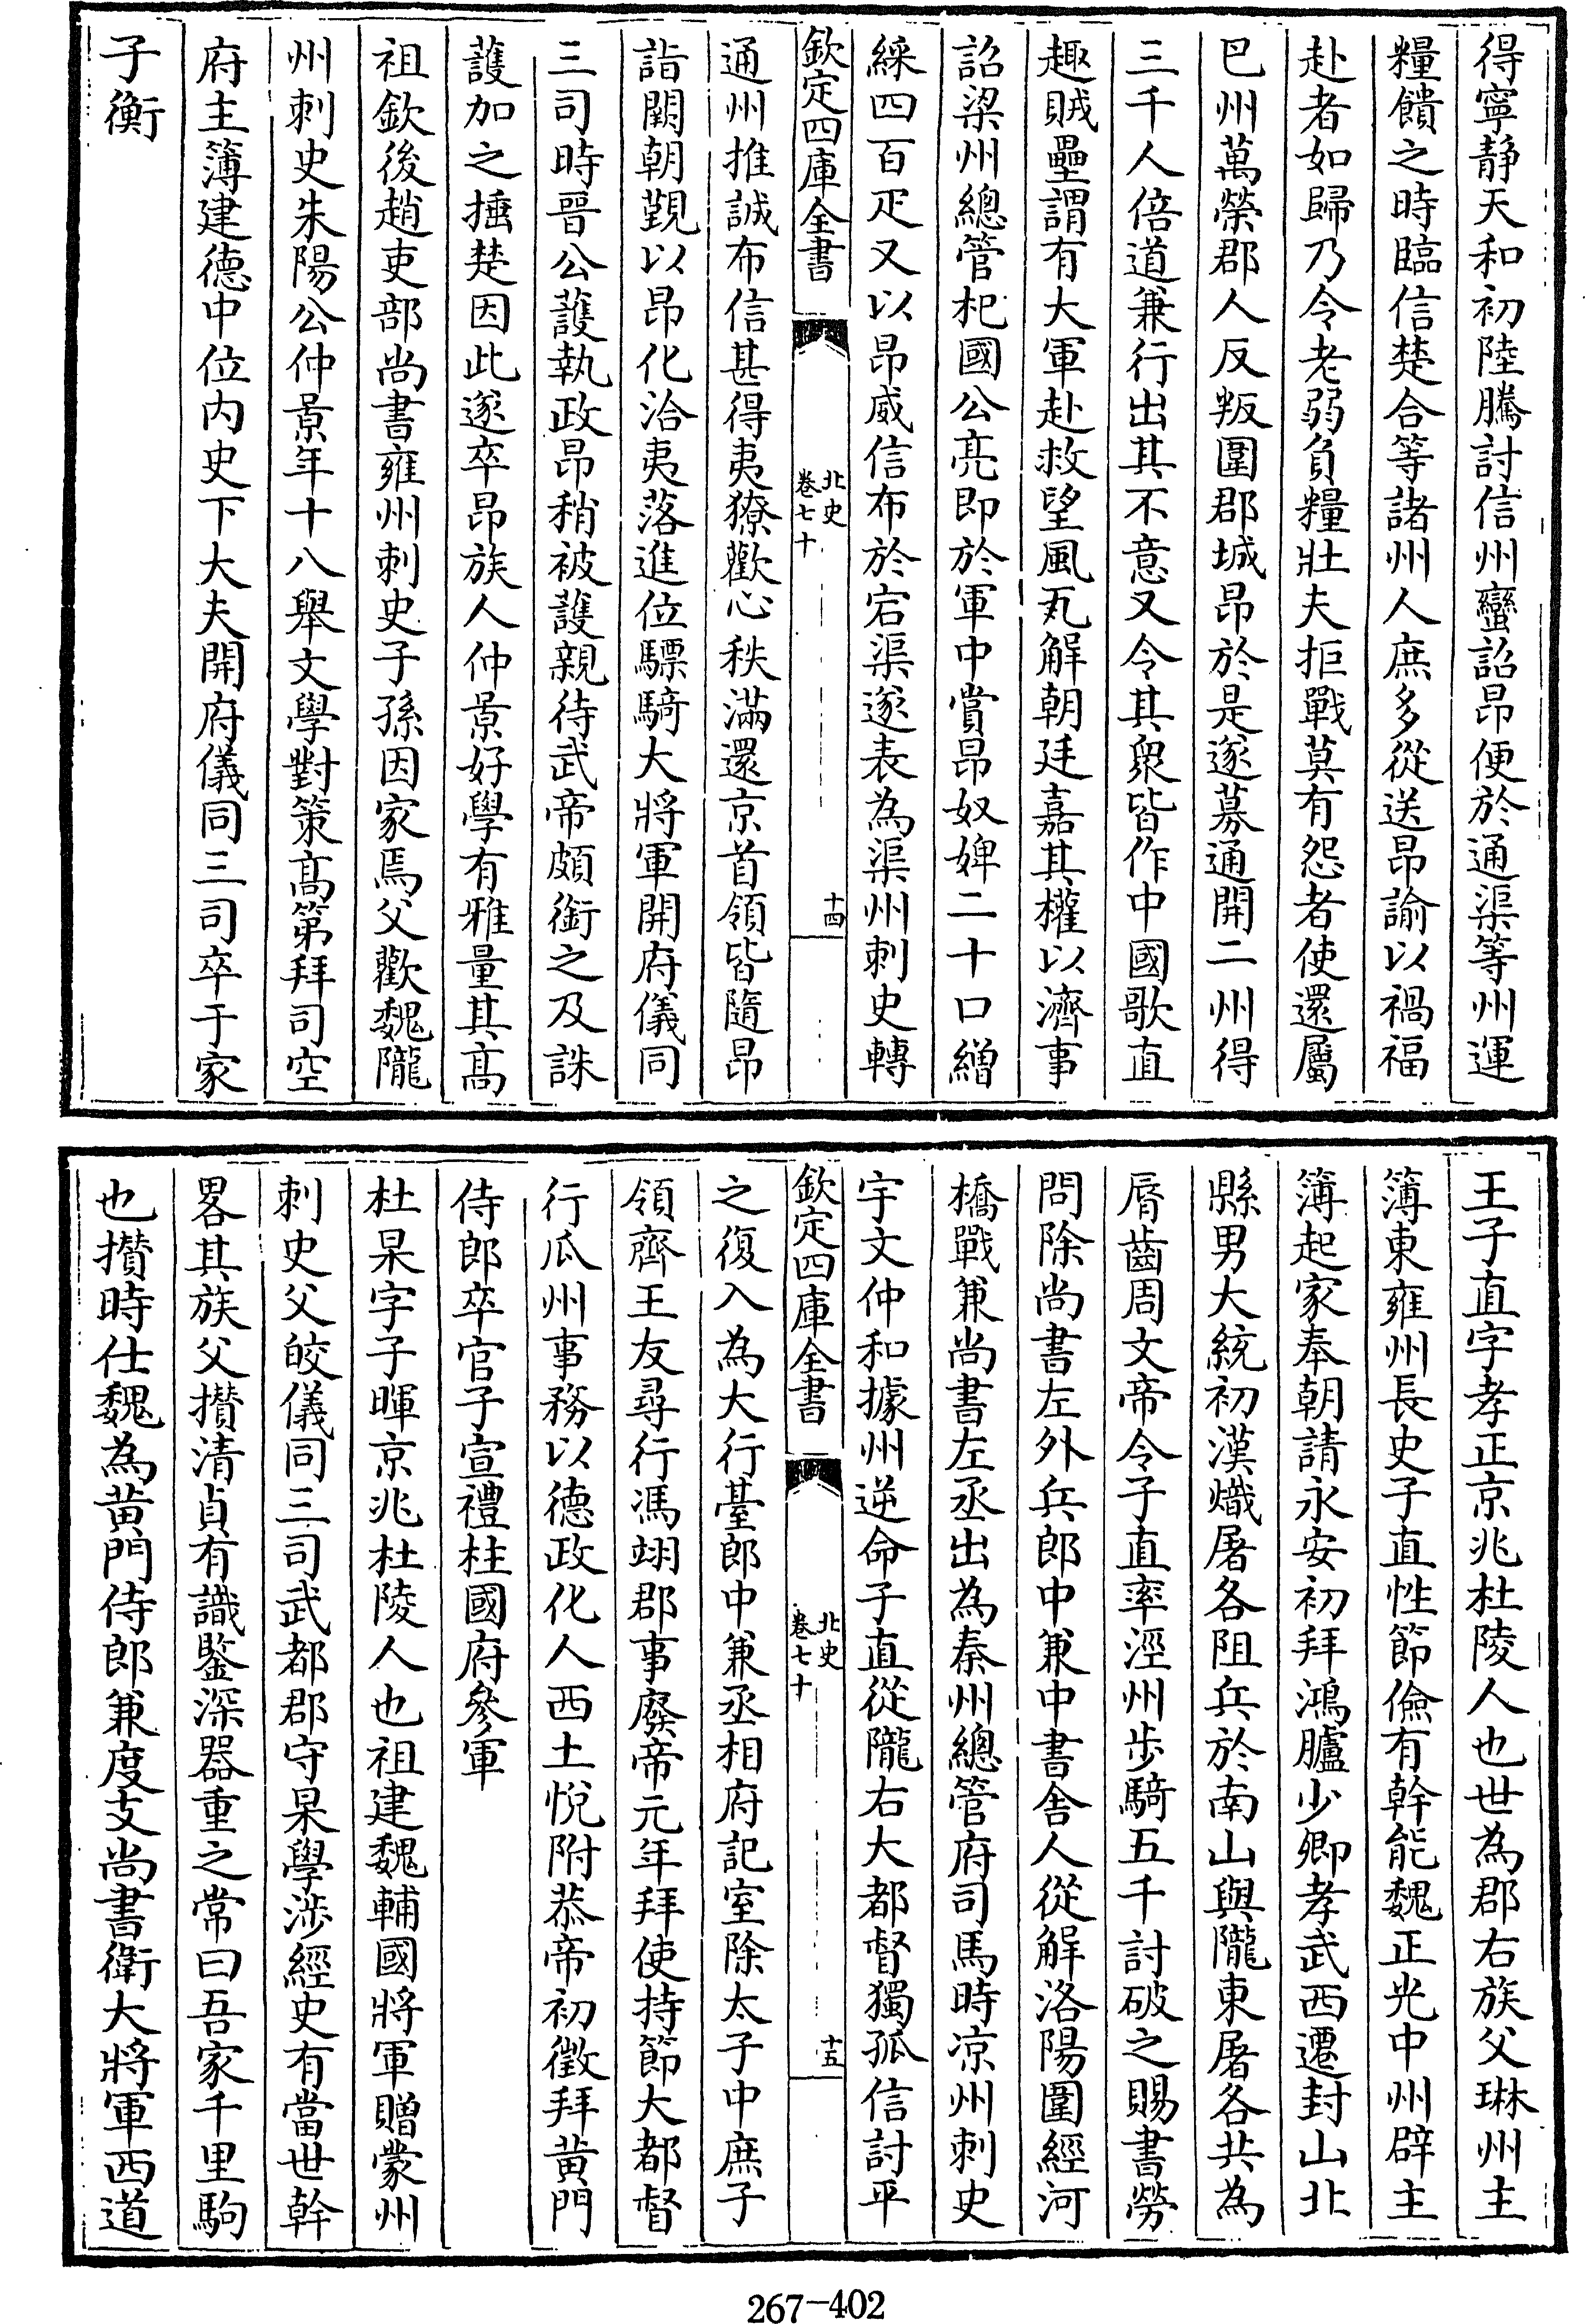 得寧静天和初陸騰討信州蠻詔昂便於通渠等州運
糧饋之時臨信楚合等諸州人庶多從送昂諭以禍福
赴者如歸乃令老弱負糧壯夫拒戰莫有怨者使還屬
巴州萬榮郡人反叛圍郡城昂於是遂募通開二州得
三千人倍道兼行出其不意又令其衆皆作中國歌直
趣賊壘謂有大軍赴救望風瓦解朝廷嘉其權以濟事
詔梁州總管杞國公亮即於軍中賞昂奴婢二十口繒
綵四百疋又以昂威信布於宕渠遂表為渠州刺史轉
欽定四庫全書
北史
卷七十
十四
通州推誠布信甚得夷獠歡心秩滿還京首領皆隨昂
詣闕朝覲以昂化洽夷落進位驃騎大將軍開府儀同
三司時晉公護執政昂稍被護親待武帝頗銜之及誅
護加之捶楚因此遂卒昂族人仲景好學有雅量其高
祖欽後趙吏部尚書雍州刺史子孫因家焉父歡魏隴
州刺史朱陽公仲景年十八舉文學對策髙第拜司空
府主簿建德中位内史下大夫開府儀同三司卒于家
子衡
王子直字孝正京兆杜陵人也世為郡右族父琳州主
簿東雍州長史子直性節儉有幹能魏正光中州辟主
簿起家奉朝請永安初拜鴻臚少卿孝武西遷封山北
縣男大統初漢熾屠各阻兵於南山與隴東屠各共為
脣齒周文帝令子直率涇州步騎五千討破之賜書勞
問除尚書左外兵郎中兼中書舍人從解洛陽圍經河
橋戰兼尚書左丞出為秦州總管府司馬時凉州刺史
宇文仲和據州逆命子直從隴右大都督獨孤信討平
欽定四庫全書
北史
卷七十
十五
之復入為大行臺郎中兼丞相府記室除太子中庶子
領齊王友尋行馮翊郡事廢帝元年拜使持節大都督
行瓜州事務以德政化人西土悅附恭帝初徵拜黄門
侍郎卒官子宣禮柱國府參軍
杜杲字子暉京兆杜陵人也祖建魏輔國將軍贈蒙州
刺史父皎儀同三司武都郡守杲學涉經史有當世幹
畧其族父攢清貞有識鑒深器重之常曰吾家千里駒
也攢時仕魏為黄門侍郎兼度支尚書衛大將軍西道
267-402